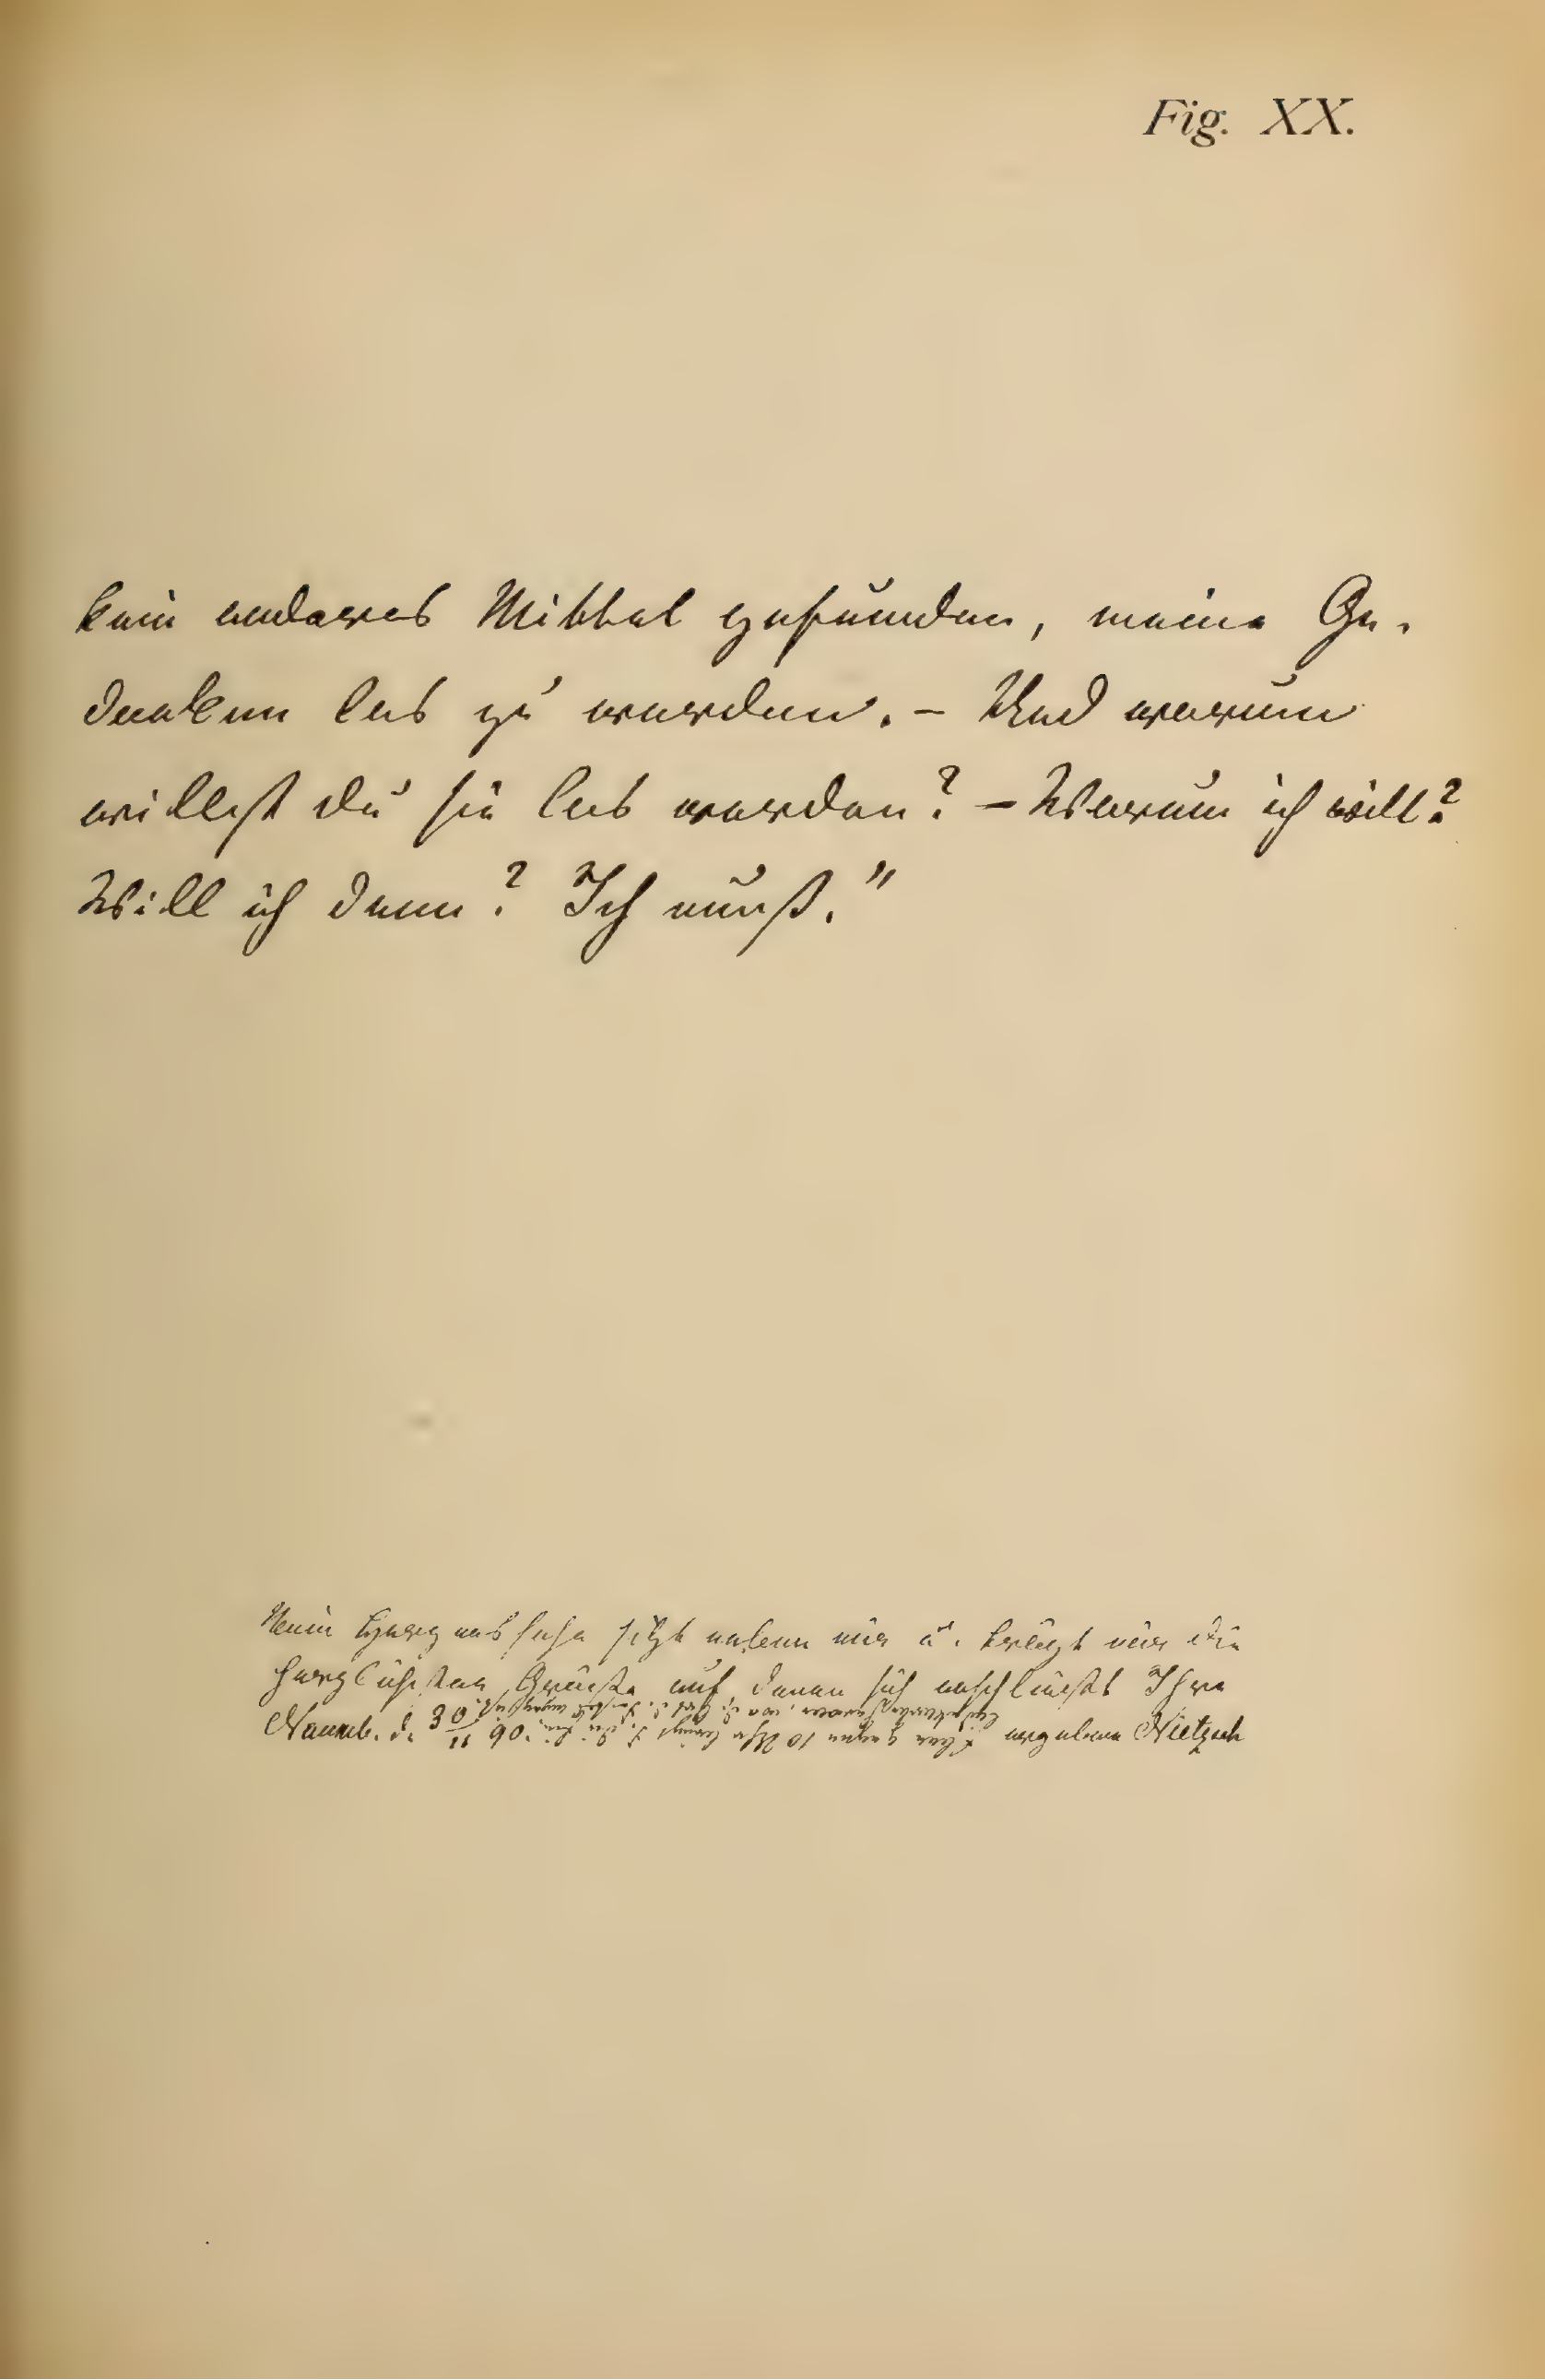 Fig. XX.
kein anderes Mittel gefunden, meine Ge-
danken los zu werden. – Und warum
willst du sie los werden? – Warum ich will?
Will ich denn? Ich muß."
Mein Herzenssohn sitzt neben mir u. trägt mir die
herzlichsten Grüße auf denen sich anschließt Ihre
Naumb. d. 30/11 90. ergebene Nietzsch